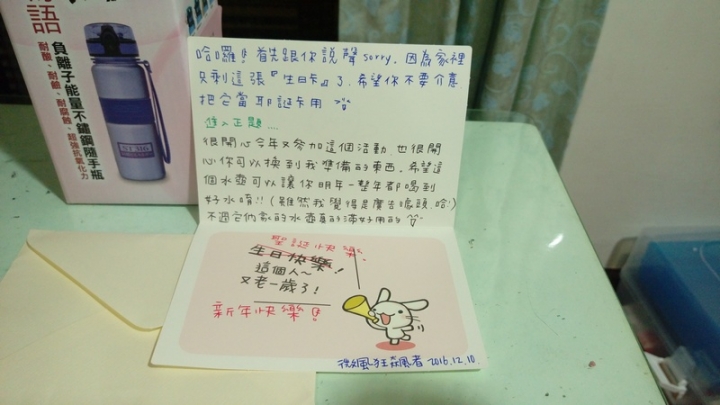 語
負離子能量不鏽鋼隨手瓶
耐酸、耐鹼、耐腐蝕、超強抗氧化力
哈囉!首先跟你說聲sorry,因為家裡
只剩這張『生日卡』了,希望你不要介意
把它當耶誕卡用
進入正題....
很開心今年又參加這個活動,也很開
心你可以換到我準備的東西,希望這
個水壺可以讓你明年一整年都喝到
好水唷!!(雖然我覺得是廣告噱頭,哈!)
不過它們家的水壺真的滿好用的
聖誕快樂.
生日快樂!
這個人~
又老一歲了!
新年快樂!
微風狂飆者 2016.12.10.